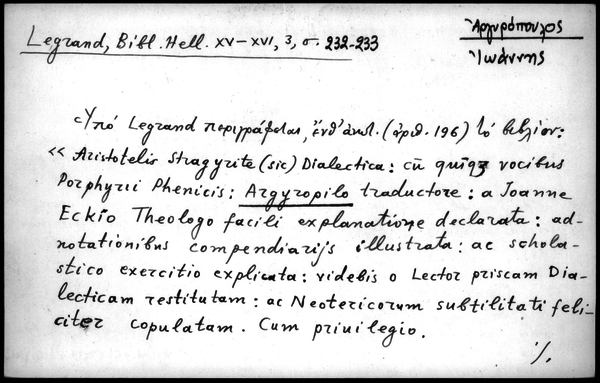 Legrand, Bibl. Hell. XV–XVI, 3, σ. 232-233
Ἀργυρόπουλος
Ἰωάννης
Ὑπό Legrand περιγράφεται, ἔνθ' ἀνωτ. (ἀριθ. 196) τό βιβλίον:
« Aristotelis Stragyrite (sic) Dialectica: cū quīqȝ vocibus
Porphyrii Phenicis: Argyropilo traductore: a Joanne
Eckio Theologo facili explanatione declarata: ad-
notationibus compendiarijs illustrata: ac schola-
stico exercitio explicata: videbis o Lector priscam Dia-
lecticam restitutam: ac Neotericorum subtilitati feli-
citer copulatam. Cum priuilegio.
./.